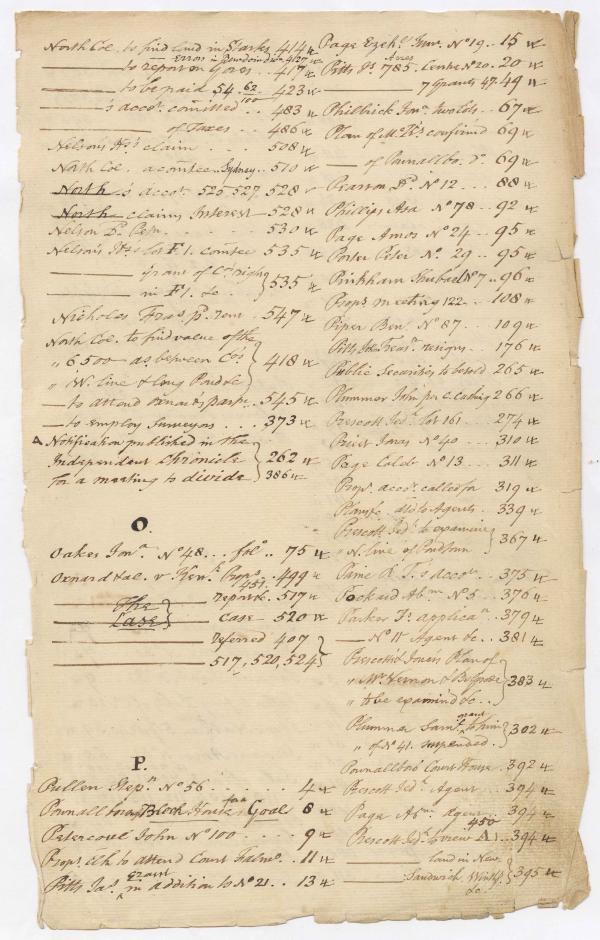 North Col. to find land in Starks 414
Errors in Bowdoindn 412
to report on Gores . . 417
to be paid 54.62/100 423
's accot. comitted . . 483
of Taxes . . 486
Nelson's Hs. claim . . . 508
North Col. a comtee Sydney . . 510
North's accot. 525.527. 528
North claims Interest 528
Nelson Dd. Petn. . . . 530
Nelson's Hs. lot F1. comtee 535
grant of Ct. right
in F1. &c. . 535
Nicholas Fras. pr. tem . 547
North Col. to find value of the
" 6500 as. between Co's
" W. line & long Pond &c 418
to attend Oxnard's partn. . 545
to employ Surveyors . . . 373
A Notification published in the
Independent Chronicle
for a meeting to divide 262
386
O.
Oakes Jona. No 48 . . . folo. . 75
Oxnard & al. v Kenk. Props. . 499
457.
report &c. 517
The
Case
case 520
referred 407
517, 520, 524
P.
Pullen Stepn. No 56 . . . . . 4
Pownallborough Block House for a Goal 8
Petercoul John No 100 . . . . 9
Props. Clk to attend Court Falmo. . 11
Pitts Jas. grant in addition to No 21 . . 13
Page Ezekl. Junr. No 19 . . 15
Pitts Js. 785. Acres Centre No 20 . 20
7 Grants 47. 49
Philbrick Jona. two lots . . 67
Plan of McKs confirm'd 69
of Pownallbo. do. 69
Pearson Dd. No 12 . . . 88
Phillips Asa No 78 . . 92
Page Amos No 24 . . 95
Porter Peter No. 29 . . 95
Pinkham Shubael No 7 . . 96
Props. meeting 122 . . 108
Piper Benj. No 87 . . . 109
Pitts Jno. Treasr. resigns . . . 176
Public Securities to be sold 265
Plummer John pr. C. Cushing 266
Prescott Jedh. lot 161 . . . 274
Priest Jonas No 40 . . . 310
Page Caleb No 13 . . . 311
Props. accot. called for 319
Plans &c. dld. to Agents . 339
Prescott Jedh. to examine
" N. line of Pondtown 367
Paine R. T.'s accot. . . 375
Packard Abm. No 5 . . . 376
Parker Fs. applicatn. . 379
No 11 Agent &c . . 381
Prescott's Jedh. Plan of
" Mt. Vernon & Belgrade
" to be examind &c . . 383
Plummer Saml. grant to him
" of No 41. suspended . . 302
Pownallboro' Court House . 392
Prescott Jedh. Agent . . 394
Page Abm. agent . . 394
450
Prescott Jedh. to view A1 . . 394
land in New
Sandwich, Winthp. &c. 395